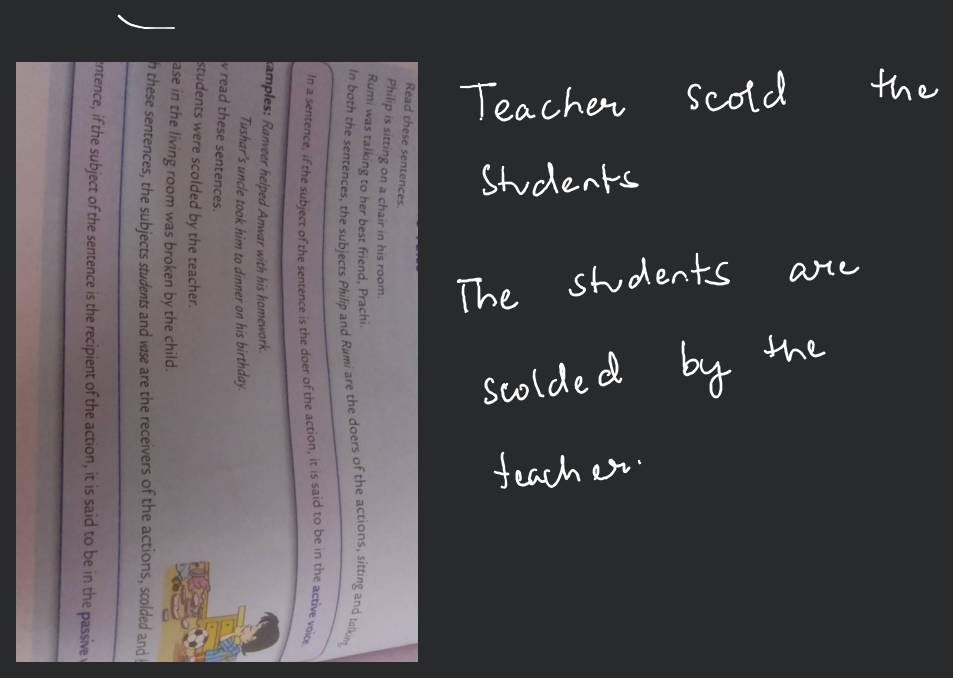 Read these sentences.
Philip is sitting on a chair in his room.
Rumi was talking to her best friend, Prachi.
In both the sentences, the subjects Philip and Rumi are the doers of the actions, sitting and talking
In a sentence, if the subject of the sentence is the doer of the action, it is said to be in the active voice.
amples: Ranveer helped Anwar with his homework.
Tushar's uncle took him to dinner on his birthday.
read these sentences.
students were scolded by the teacher.
ase in the living room was broken by the child.
h these sentences, the subjects students and vase are the receivers of the actions, scolded and
ntence, if the subject of the sentence is the recipient of the action, it is said to be in the passive
Teacher scold the
students
The students are
scolded by the
teacher.